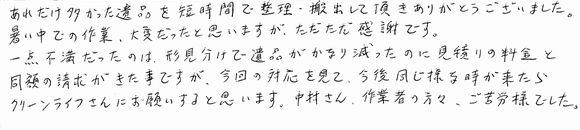 あれだけ多かった遺品を短時間で整理・搬出して頂きありがとうございました。
暑い中での作業、大変だったと思いますが、ただただ感謝です。
一点不満だったのは、形見分けで遺品がかなり減ったのに見積りの料金と
同額の請求がきた事ですが、今回の対応を見て、今後同じ様な時が来たら
クリーンライフさんにお願いすると思います。中村さん、作業者の方々、ご苦労様でした。